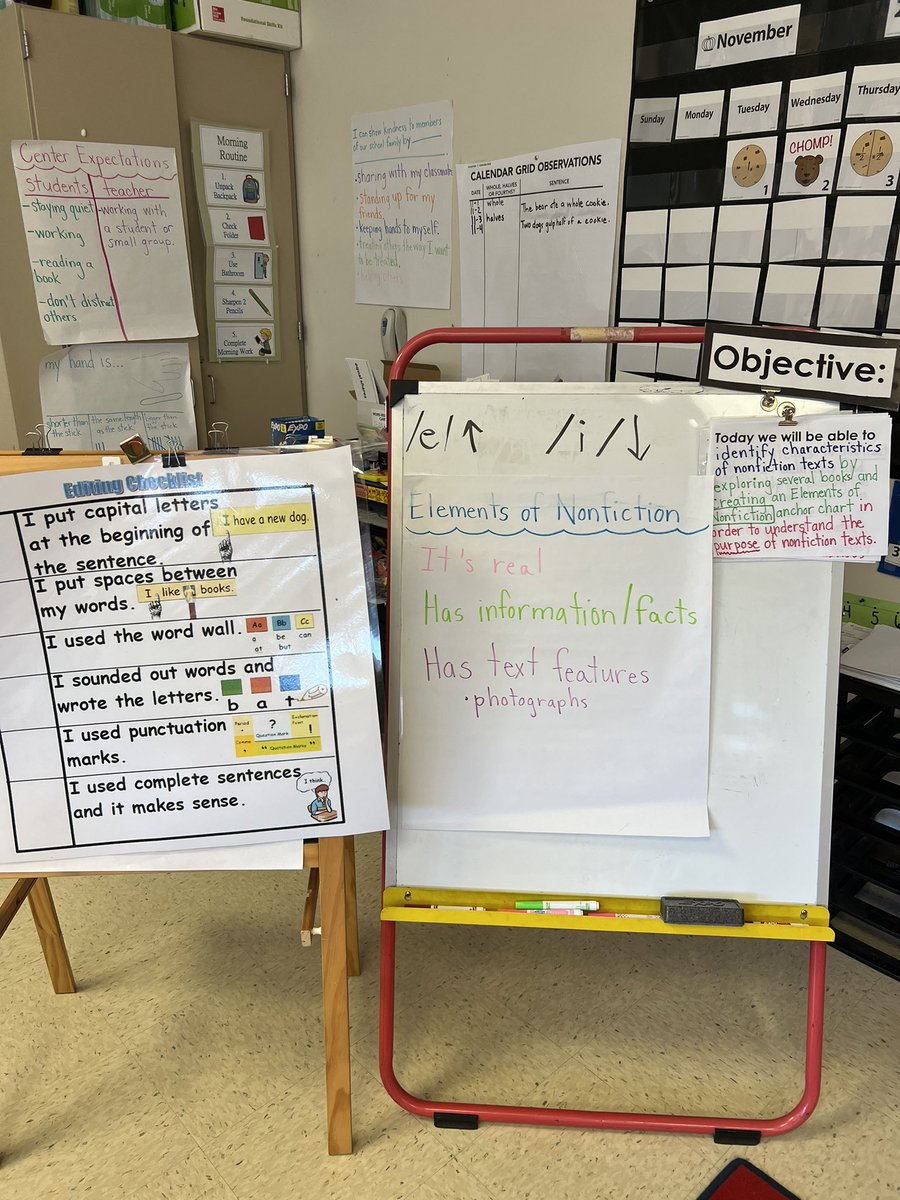 Foundational Skills Kit
Center Expectations
students
-staying quiet
-working
-reading a
book
-don't distract
others
teacher
-working with
a student or
small group.
my hand is...
shorter than
the stick
the same length
as the stick
longer than
the stick
Morning
Routine
1.
Unpack
Backpack
2.
Check
Folder
3.
Use
Bathroom
4.
Sharpen 2
Pencils
5.
Complete
Morning Work
I can show kindness to members
of our school family by
•sharing with my classmates
•standing up for my
friends.
•keeping hands to myself.
•treating others the way I want
to be treated.
•helping others
CALENDAR GRID OBSERVATIONS
WHOLE, HALVES
OR FOURTHS?
SENTENCE
11-2 whole The bear ate a whole cookie.
11-3 halves Two dogs gulp half of a cookie.
11-4
November
Sunday Monday Tuesday Wednesday Thursday
1
CHOMP!
2
3
EXPO
Editing Checklist
I put capital letters
at the beginning of
the sentence.
I have a new dog.
I put spaces between
my words.
I like books.
I used the word wall.
Aa Bb Cc
a be can
at but
I sounded out words and
wrote the letters.
b a t
I used punctuation
marks.
Period .
? Question Mark
Exclamation Point !
Comma ,
" " Quotation Marks
I used complete sentences
and it makes sense.
I think...
/e/↑ /i/↓
Elements of Nonfiction
It's real
Has information/facts
Has text features
•photographs
Objective:
Today we will be able to
identify characteristics
of nonfiction texts by
exploring several books and
creating an Elements of
Nonfiction anchor chart in
order to understand the
purpose of nonfiction texts.
4 5 6